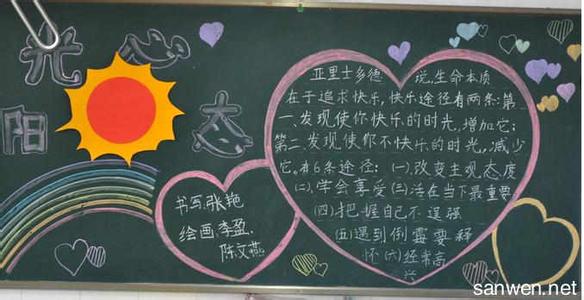 阳光心态
亚里士多德说,生命本质
在于追求快乐,快乐途径有两条:第
一、发现使你快乐的时光,增加它;
第二、发现使你不快乐的时光,减少
它。有6条途径:(一)、改变主观态度
(二)、学会享受(三)活在当下最重要
(四)把握自己不逞强
(五)遇到倒霉要释
怀(六)经常高
兴
书写:张艳
绘画:李盈、
陈文燕
sanwen.net